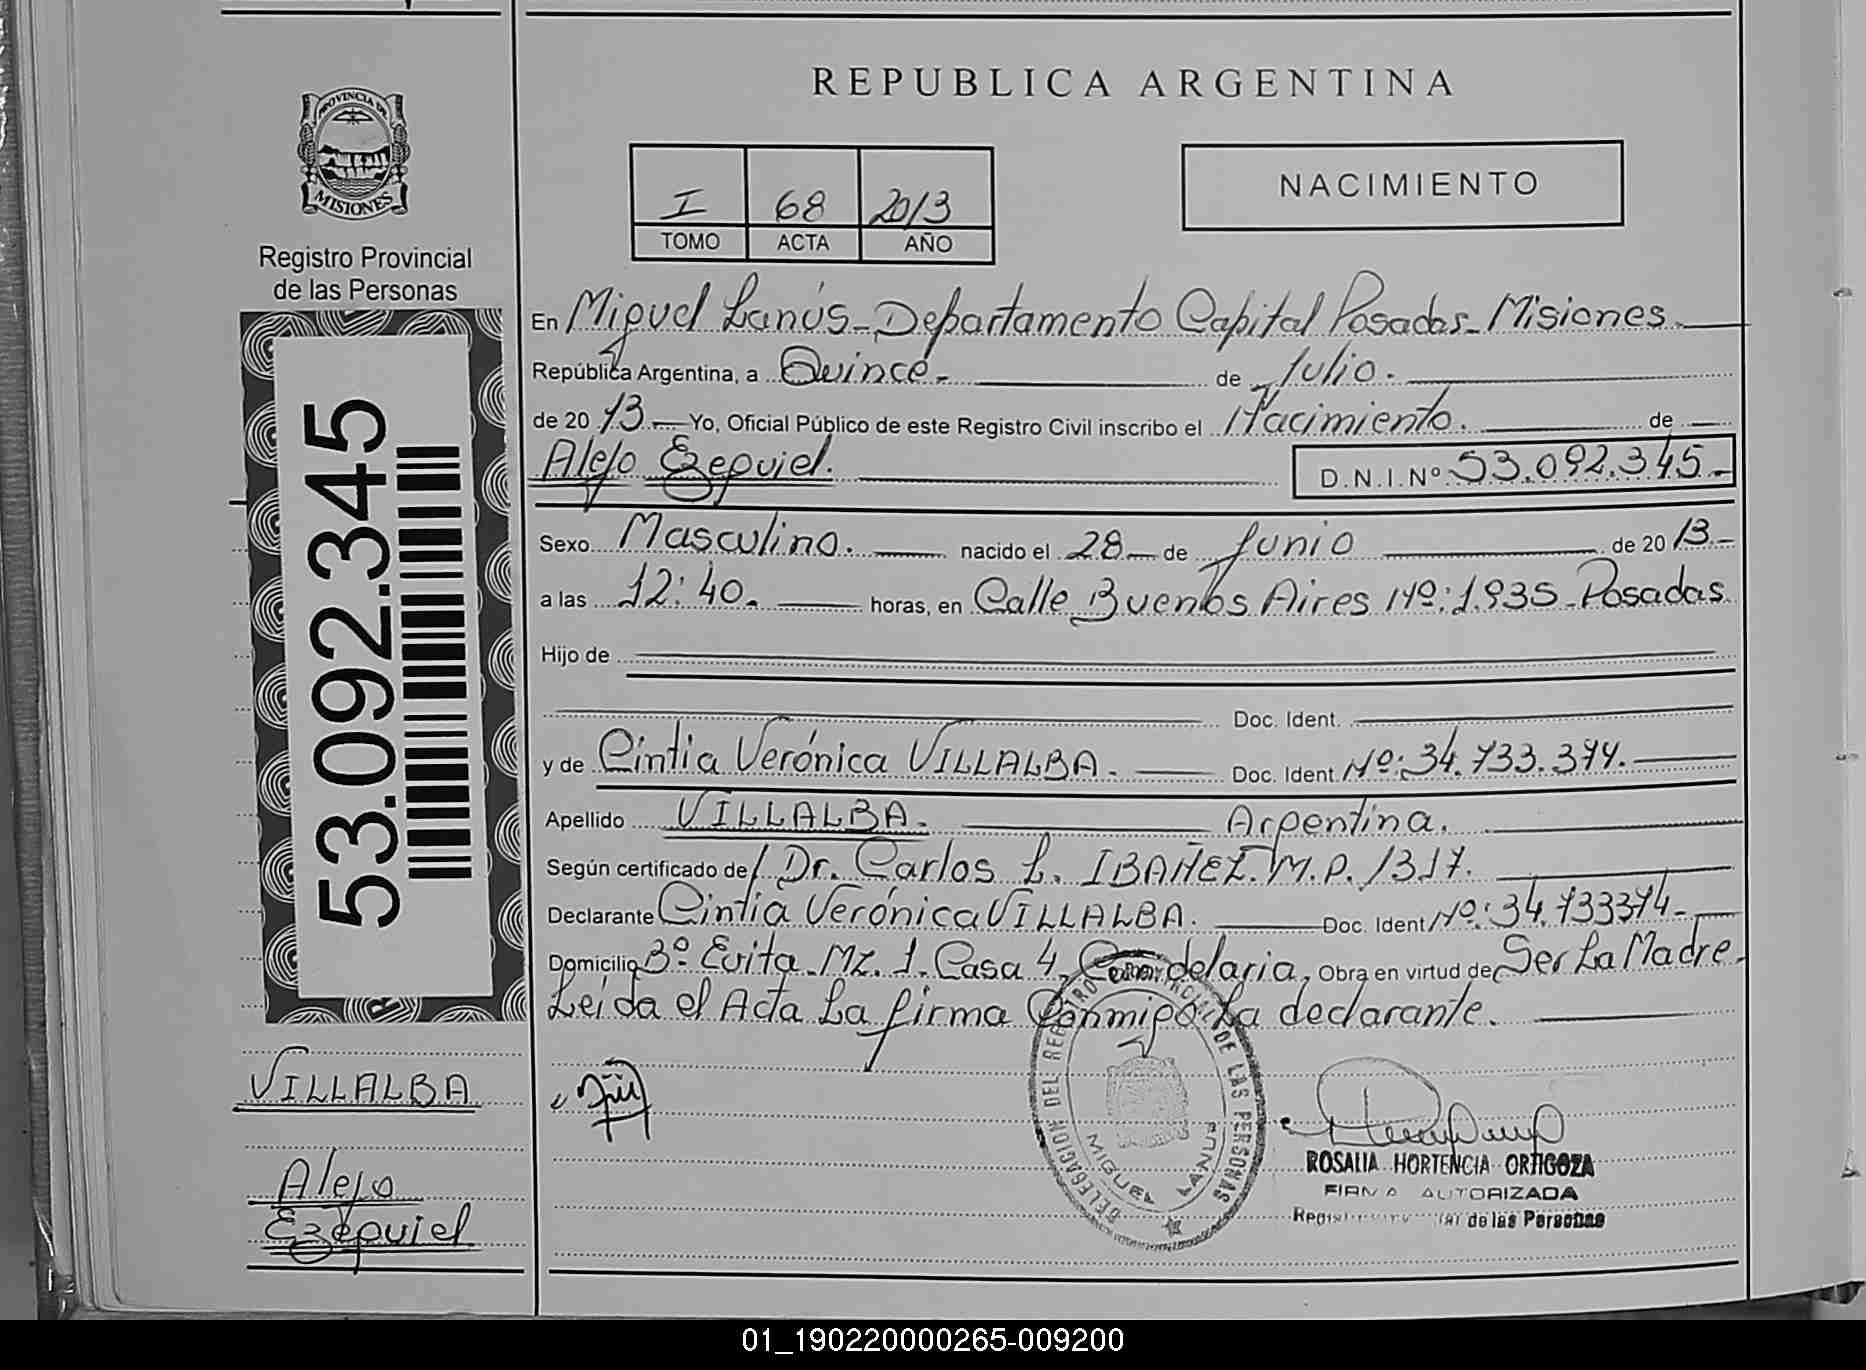 REPUBLICA ARGENTINA
PROVINCIA DE
MISIONES
Registro Provincial
de las Personas
I 68 2013
TOMO ACTA AÑO
NACIMIENTO
53.092.345
En Miguel Lanús - Departamento Capital Posadas - Misiones.
República Argentina, a Quince - de Julio.
de 20 13 - Yo, Oficial Público de este Registro Civil inscribo el Nacimiento. de
Alejo Ezequiel. D.N.I.Nº 53.092.345.-
Sexo Masculino. nacido el 28 - de Junio de 20 13.-
a las 12:40. horas, en Calle Buenos Aires Nº: 1.935 - Posadas.
Hijo de
Doc. Ident.
y de Cintia Verónica VILLALBA. Doc. Ident. Nº: 34.733.374.
Apellido VILLALBA. Argentina.
Según certificado de Dr. Carlos L. IBAÑEZ. M.P. 1317.
Declarante Cintia Verónica VILLALBA. Doc. Ident Nº: 34.733374.-
Domicilio Bº Evita. Mz. 1. Casa 4. Candelaria. Obra en virtud de Ser La Madre.
Leída el Acta La firma Conmigo La declarante.
VILLALBA
Alejo
Ezequiel
DELEGACION DEL REGISTRO PROVINCIAL DE LAS PERSONAS
MIGUEL LANUS
ROSALIA HORTENCIA ORTIGOZA
FIRMA AUTORIZADA
de las Personas
01_190220000265-009200